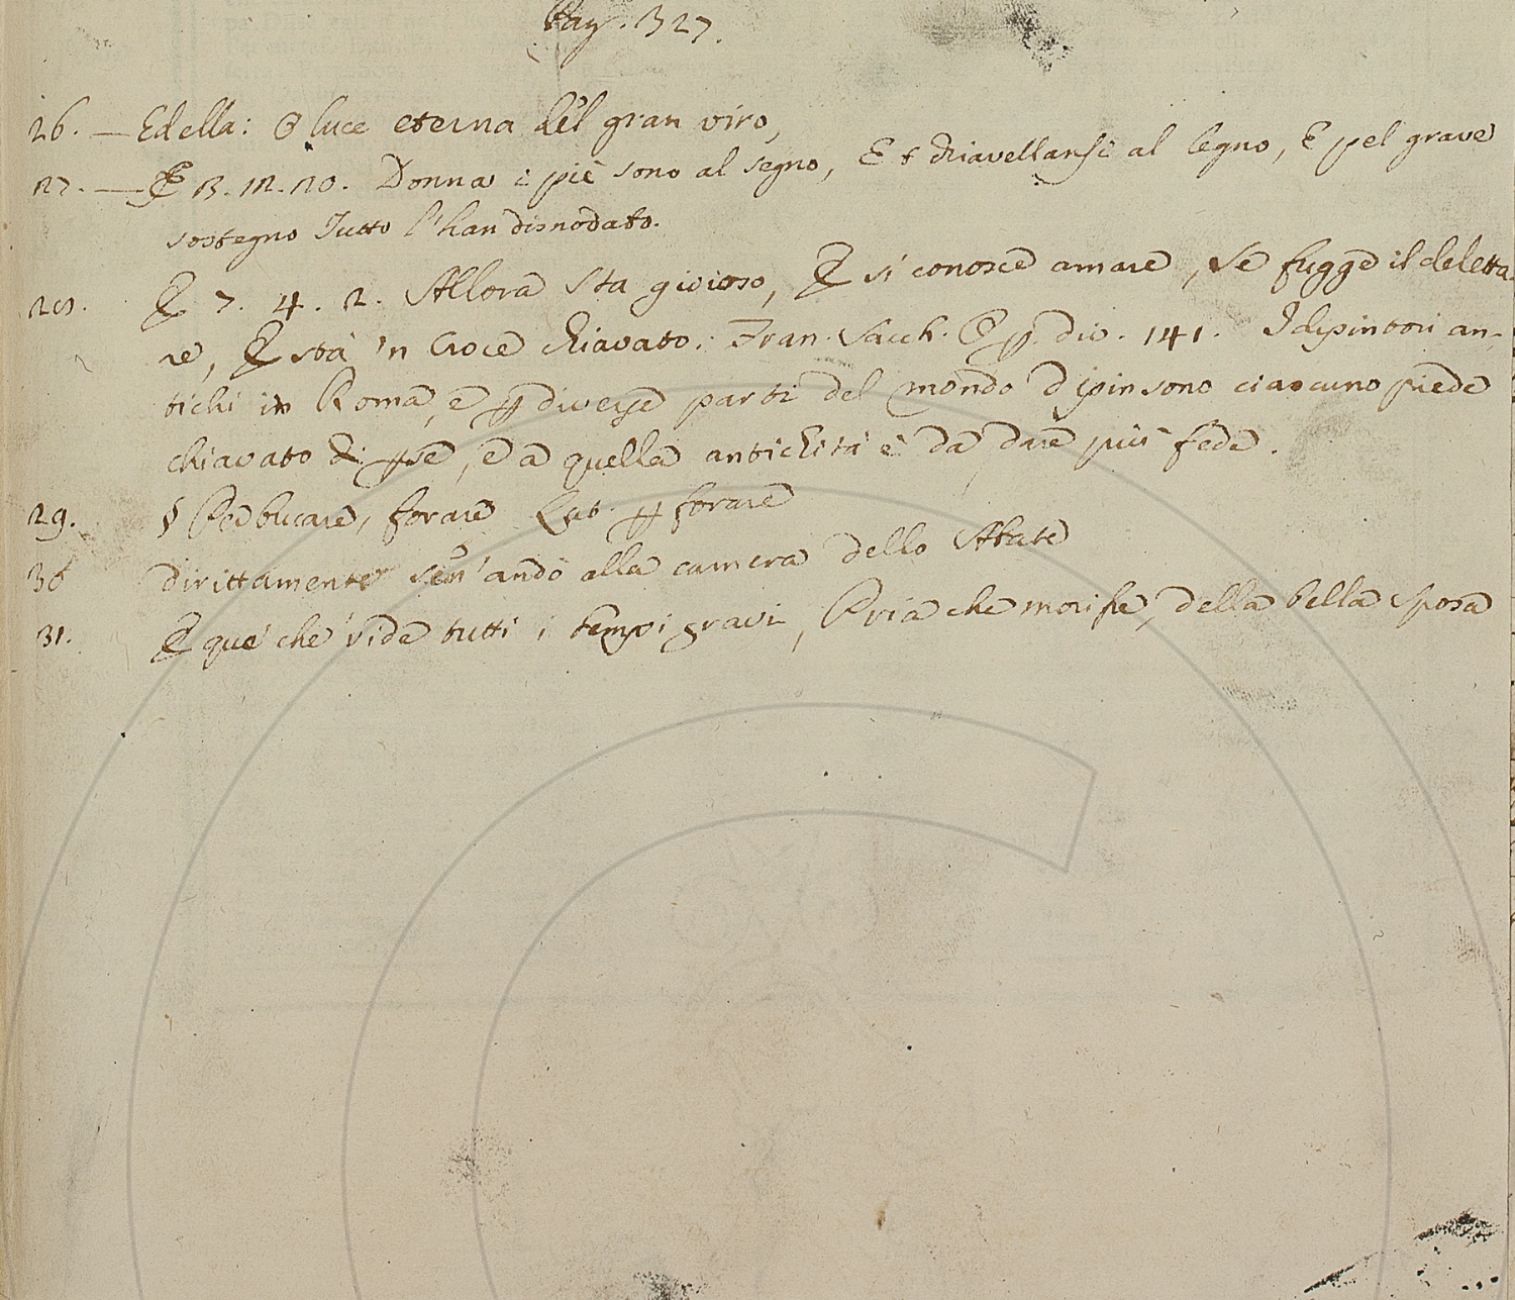 Pag. 327.
26. — Ed ella: O luce eterna del gran viro,
27. — E 3. 12. 20. Donna i piè sono al segno, E + chiavellansi al legno, E pel grave
sostegno Tutto l'han disnodato.
28. E 7. 4. 2. Allora sta gioioso, E si conosce amare, Se fugge il deletta
re, E sta 'n Croce chiavato. Fran. Sacch. Op. div. 141. I dipintori an-
tichi in Roma, e p diverse parti del mondo dipinsono ciascuno piede
chiavato di p se, e a quella antichità è da dare più fede.
29. § Per bucare, forare Lat. pforare
30 dirittamente sen'andò alla camera dello Abate
31. E que che vide tutti i tempi gravi, Pria che morisse, della bella sposa